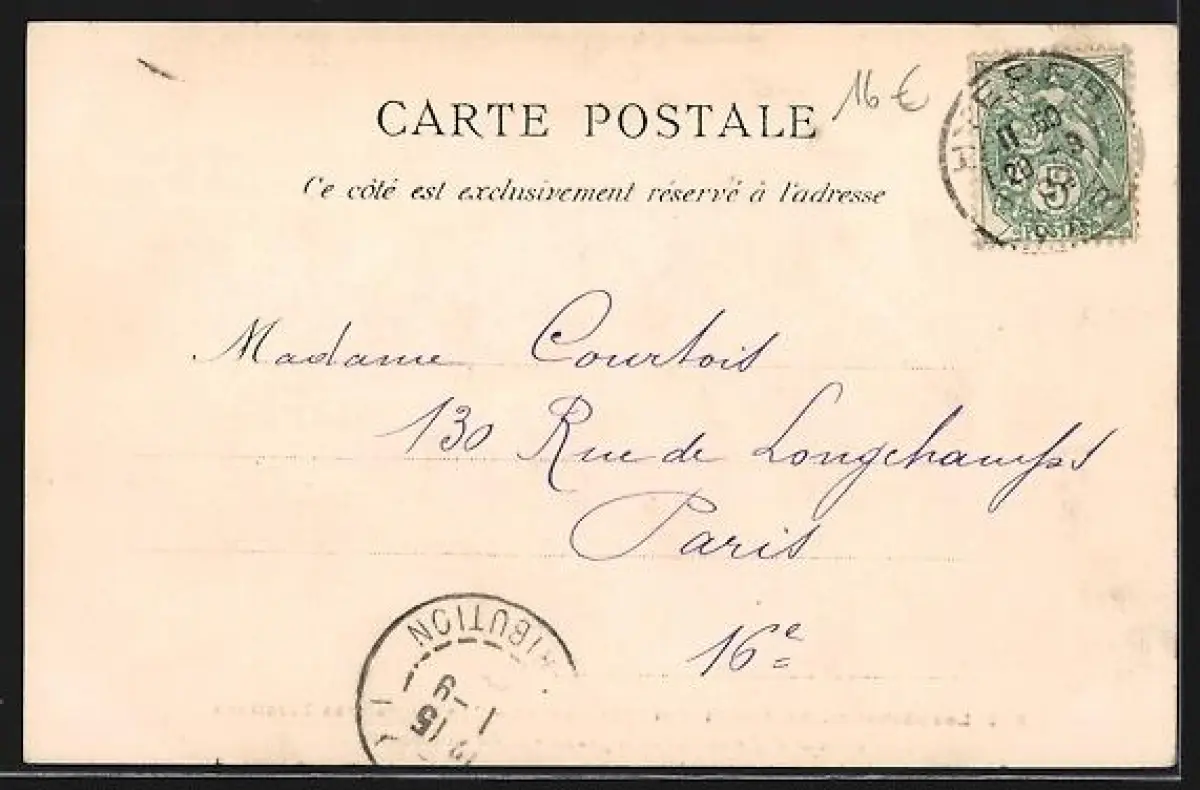 CARTE POSTALE
16 €
Ce côté est exclusivement réservé à l'adresse
HYÈRES
11 50
29
5
POSTES
Madame Courtois
130 Rue de Longchamps
Paris
16e
DISTRIBUTION
15